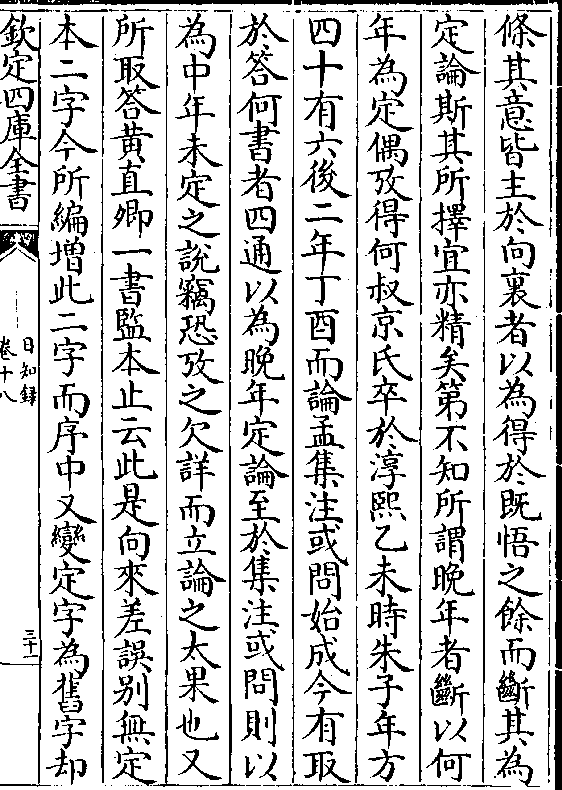 條其意皆主於向裏者以為得於既悟之餘而斷其為
定論斯其所擇宜亦精矣第不知所謂晚年者斷以何
年為定偶攷得何叔京氏卒於淳熙乙未時朱子年方
四十有六後二年丁酉而論孟集注或問始成今有取
於答何書者四通以為晚年定論至於集注或問則以
為中年未定之說竊恐攷之欠詳而立論之太果也又
所取答黃直卿一書監本止云此是向來差誤別無定
本二字今所編增此二字而序中又變定字為舊字却
欽定四庫全書
日知錄
卷十八
三十一